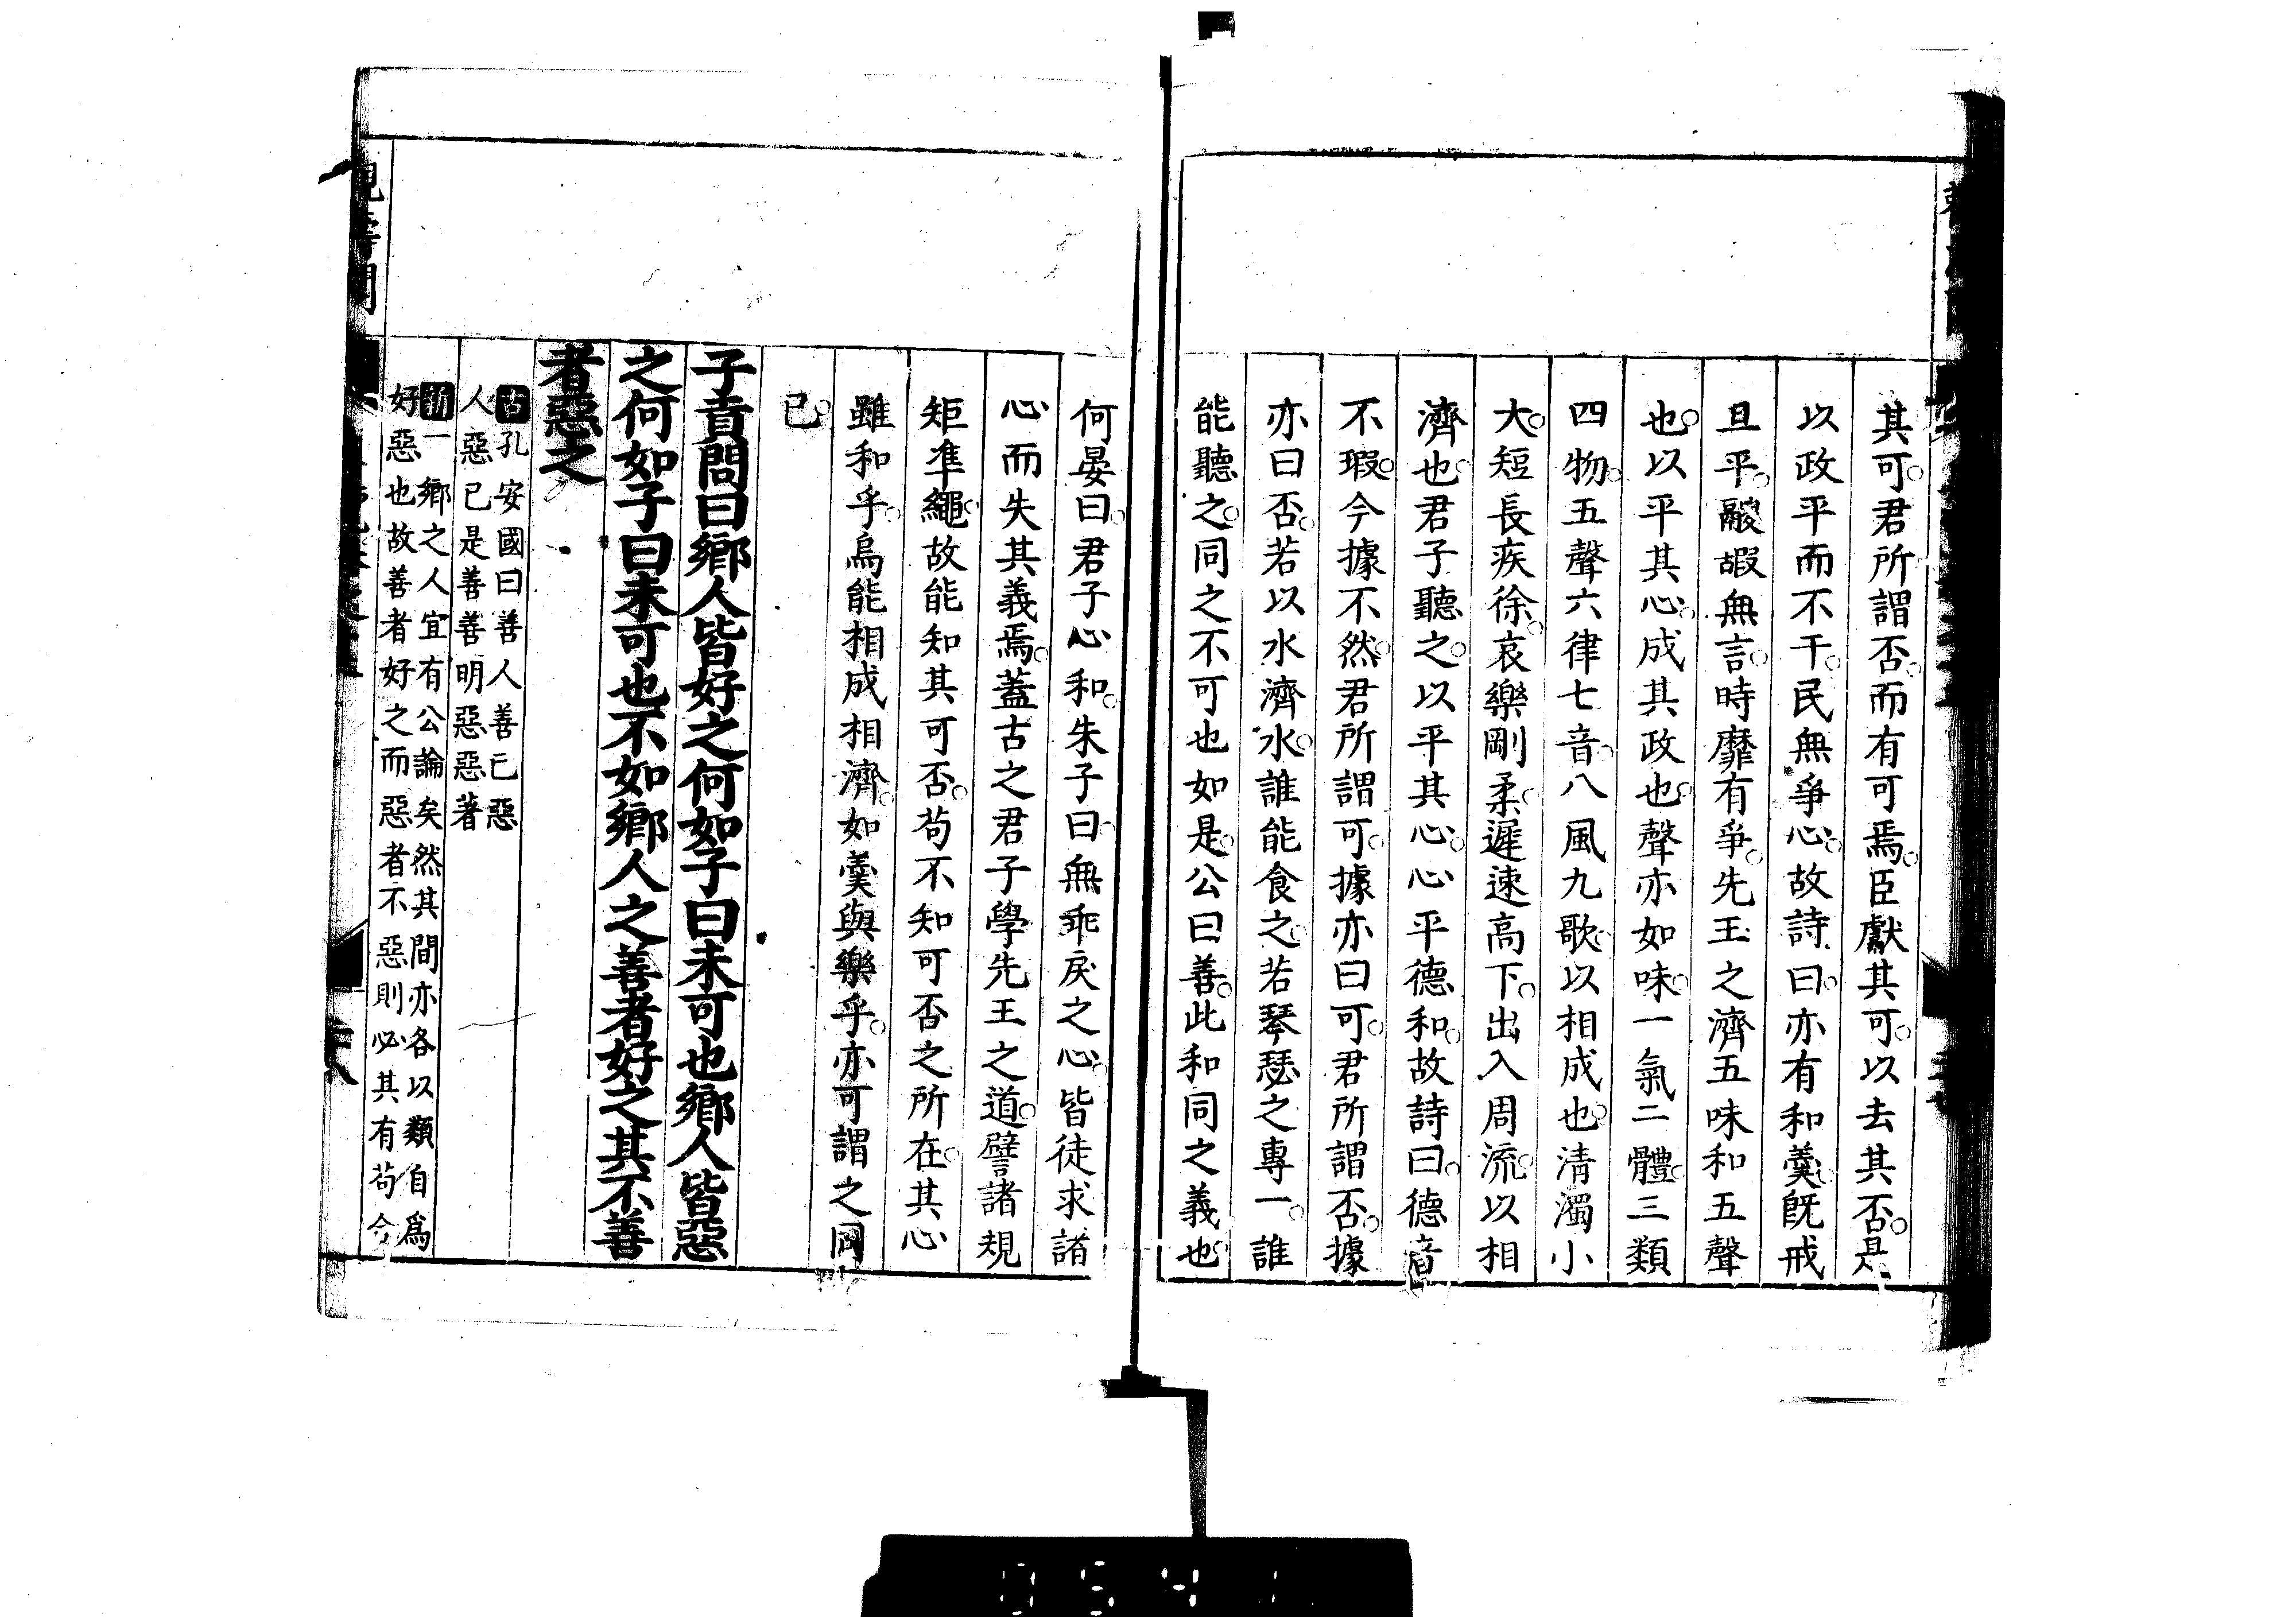 其可。君所謂否。而有可焉。臣獻其可。以去其否。是
以政平而不干。民無爭心。故詩曰。亦有和羹。旣戒
且平。鬷嘏無言。時靡有爭。先王之濟五味和五聲
也。以平其心。成其政也。聲亦如味。一氣二體。三類
四物。五聲六律七音。八風九歌。以相成也。淸濁小
大。短長疾徐。哀樂剛柔。遲速高下。出入周流。以相
濟也。君子聽之。以平其心。心平德和。故詩曰。德音
不瑕。今據不然。君所謂可。據亦曰可。君所謂否。據
亦曰否。若以水濟水。誰能食之。若琴瑟之專一。誰
能聽之。同之不可也如是。公曰善。此和同之義也
何晏曰。君子心和。朱子曰。無乖戾之心。皆徒求諸
心而失其義焉。蓋古之君子學先王之道。譬諸規
矩準繩。故能知其可否。苟不知可否之所在。其心
雖和乎。烏能相成相濟。如羹與樂乎。亦可謂之罔
已。
子貢問曰鄉人皆好之何如子曰未可也鄉人皆惡
之何如子曰未可也不如鄉人之善者好之其不善
者惡之
古孔安國曰善人善已惡
人惡已是善善明惡惡著
新一鄉之人宜有公論矣然其間亦各以類自爲
好惡也故善者好之而惡者不惡則必其有苟合